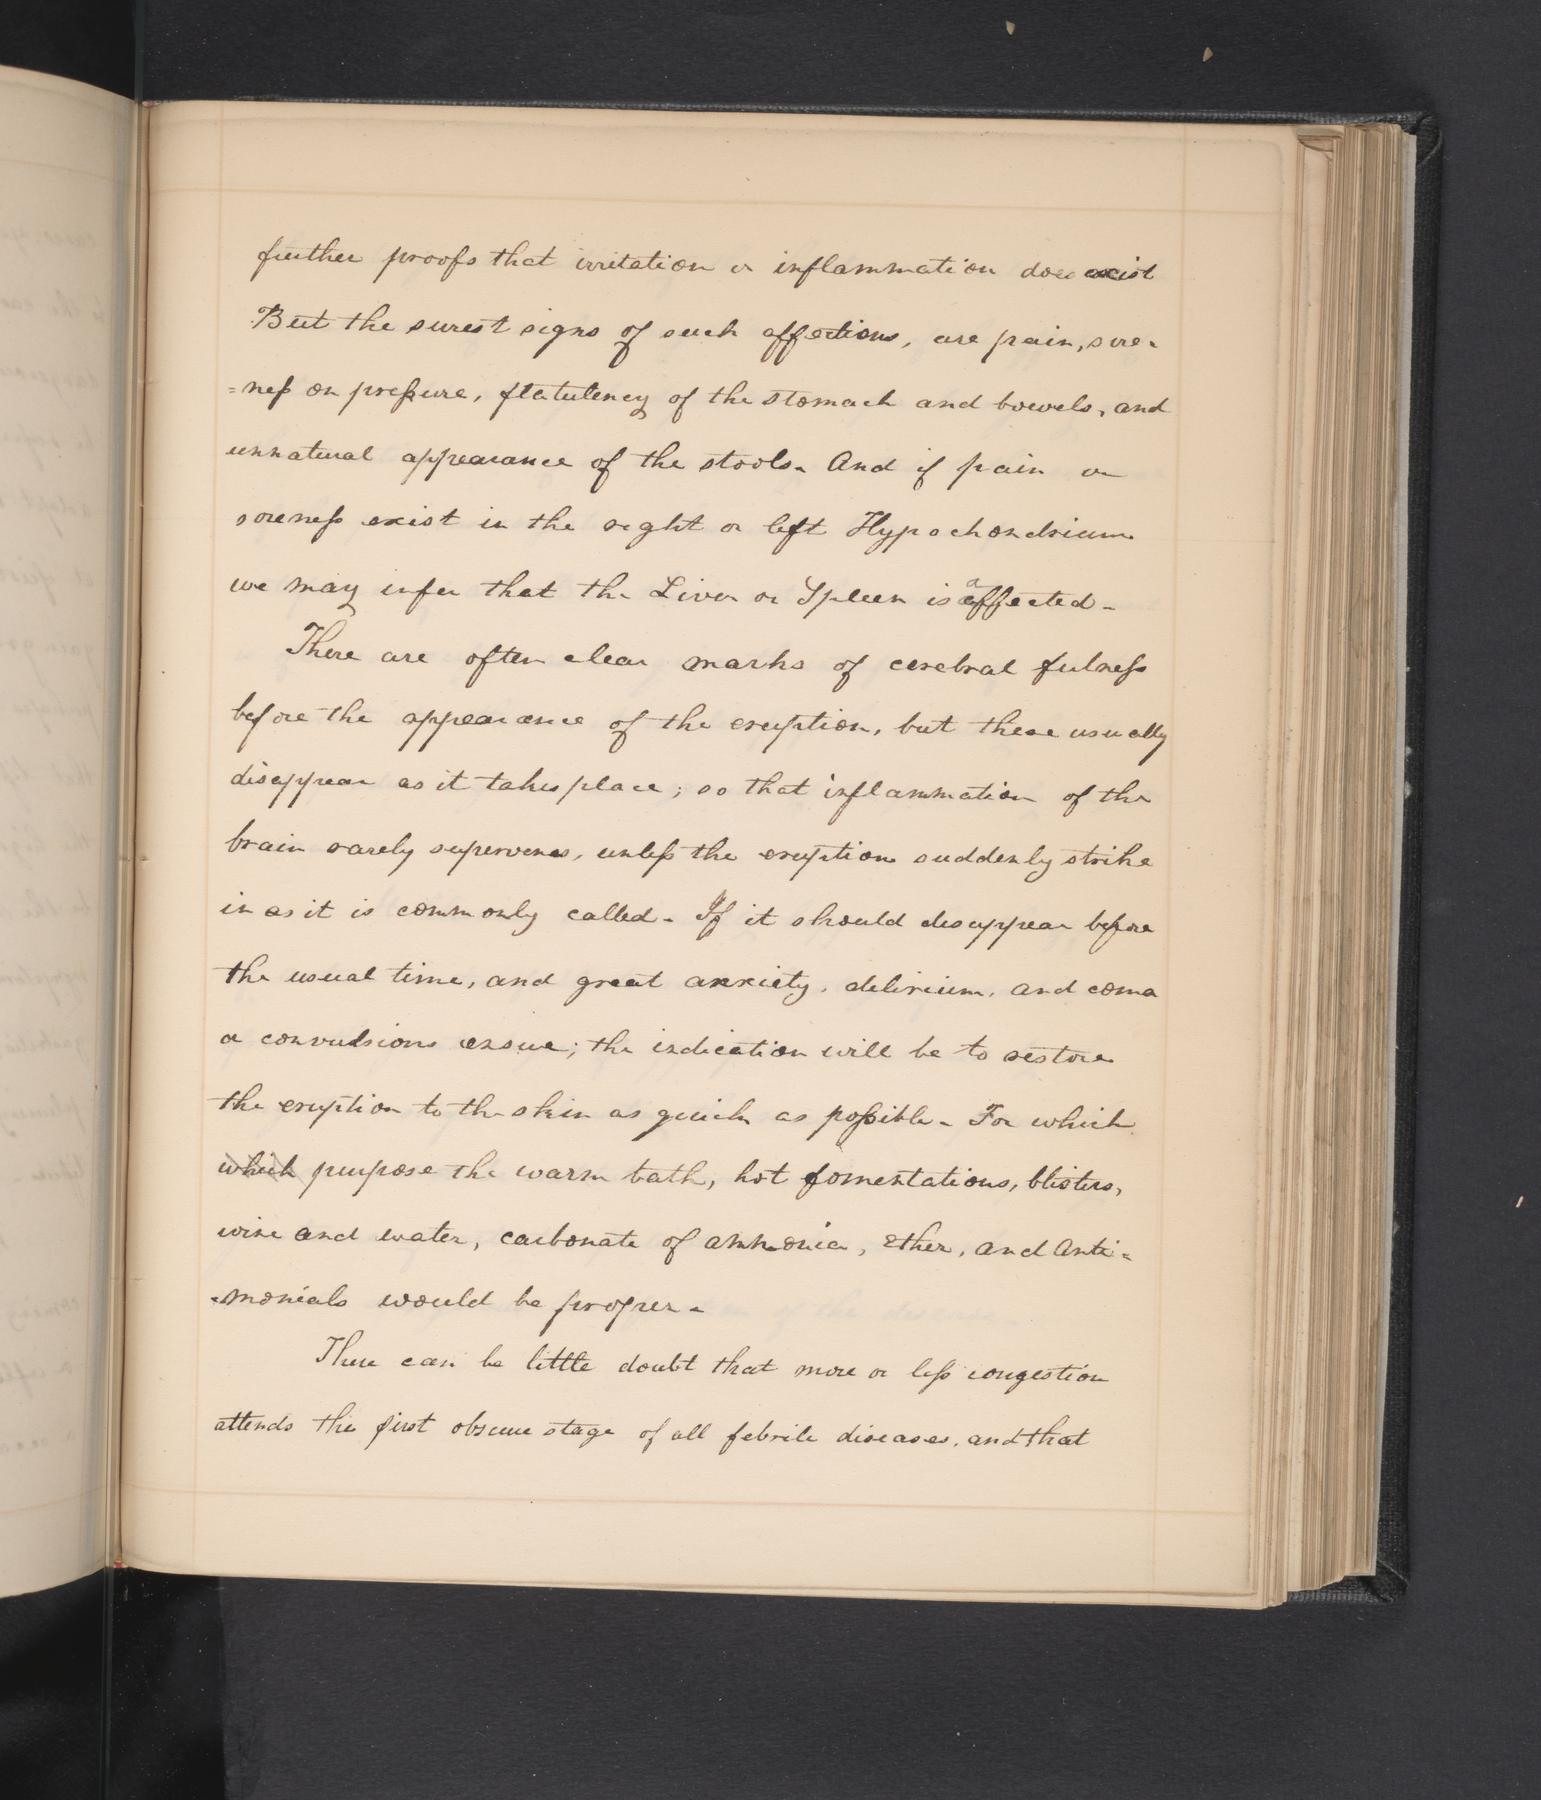 further proofs that irritation or inflammation does exist
But the surest signs of such affections, are pain, sore-
=ness on pressure, flatulency of the stomach and bowels, and
unnatural appearance of the stools. And if pain or
soreness exist in the right or left Hypochondrium
we may infer that the Liver or Spleen is affected-
There are often clear marks of cerebral fulness
before the appearance of the eruption, but these usually
disappear as it takes place; so that inflammation of the
brain rarely supervenes, unless the eruption suddenly strike
in as it is commonly called- If it should disappear before
the usual time, and great anxiety, delirium, and coma
or convulsions ensue; the indication will be to restore
the eruption to the skin as quick as possible- For which
which purpose the warm bath, hot fomentations, blisters,
wine and water, carbonate of ammonia, Ether, and Anti-
-monials would be proper-
There can be little doubt that more or less congestion
attends the first obscure stage of all febrile diseases, and that